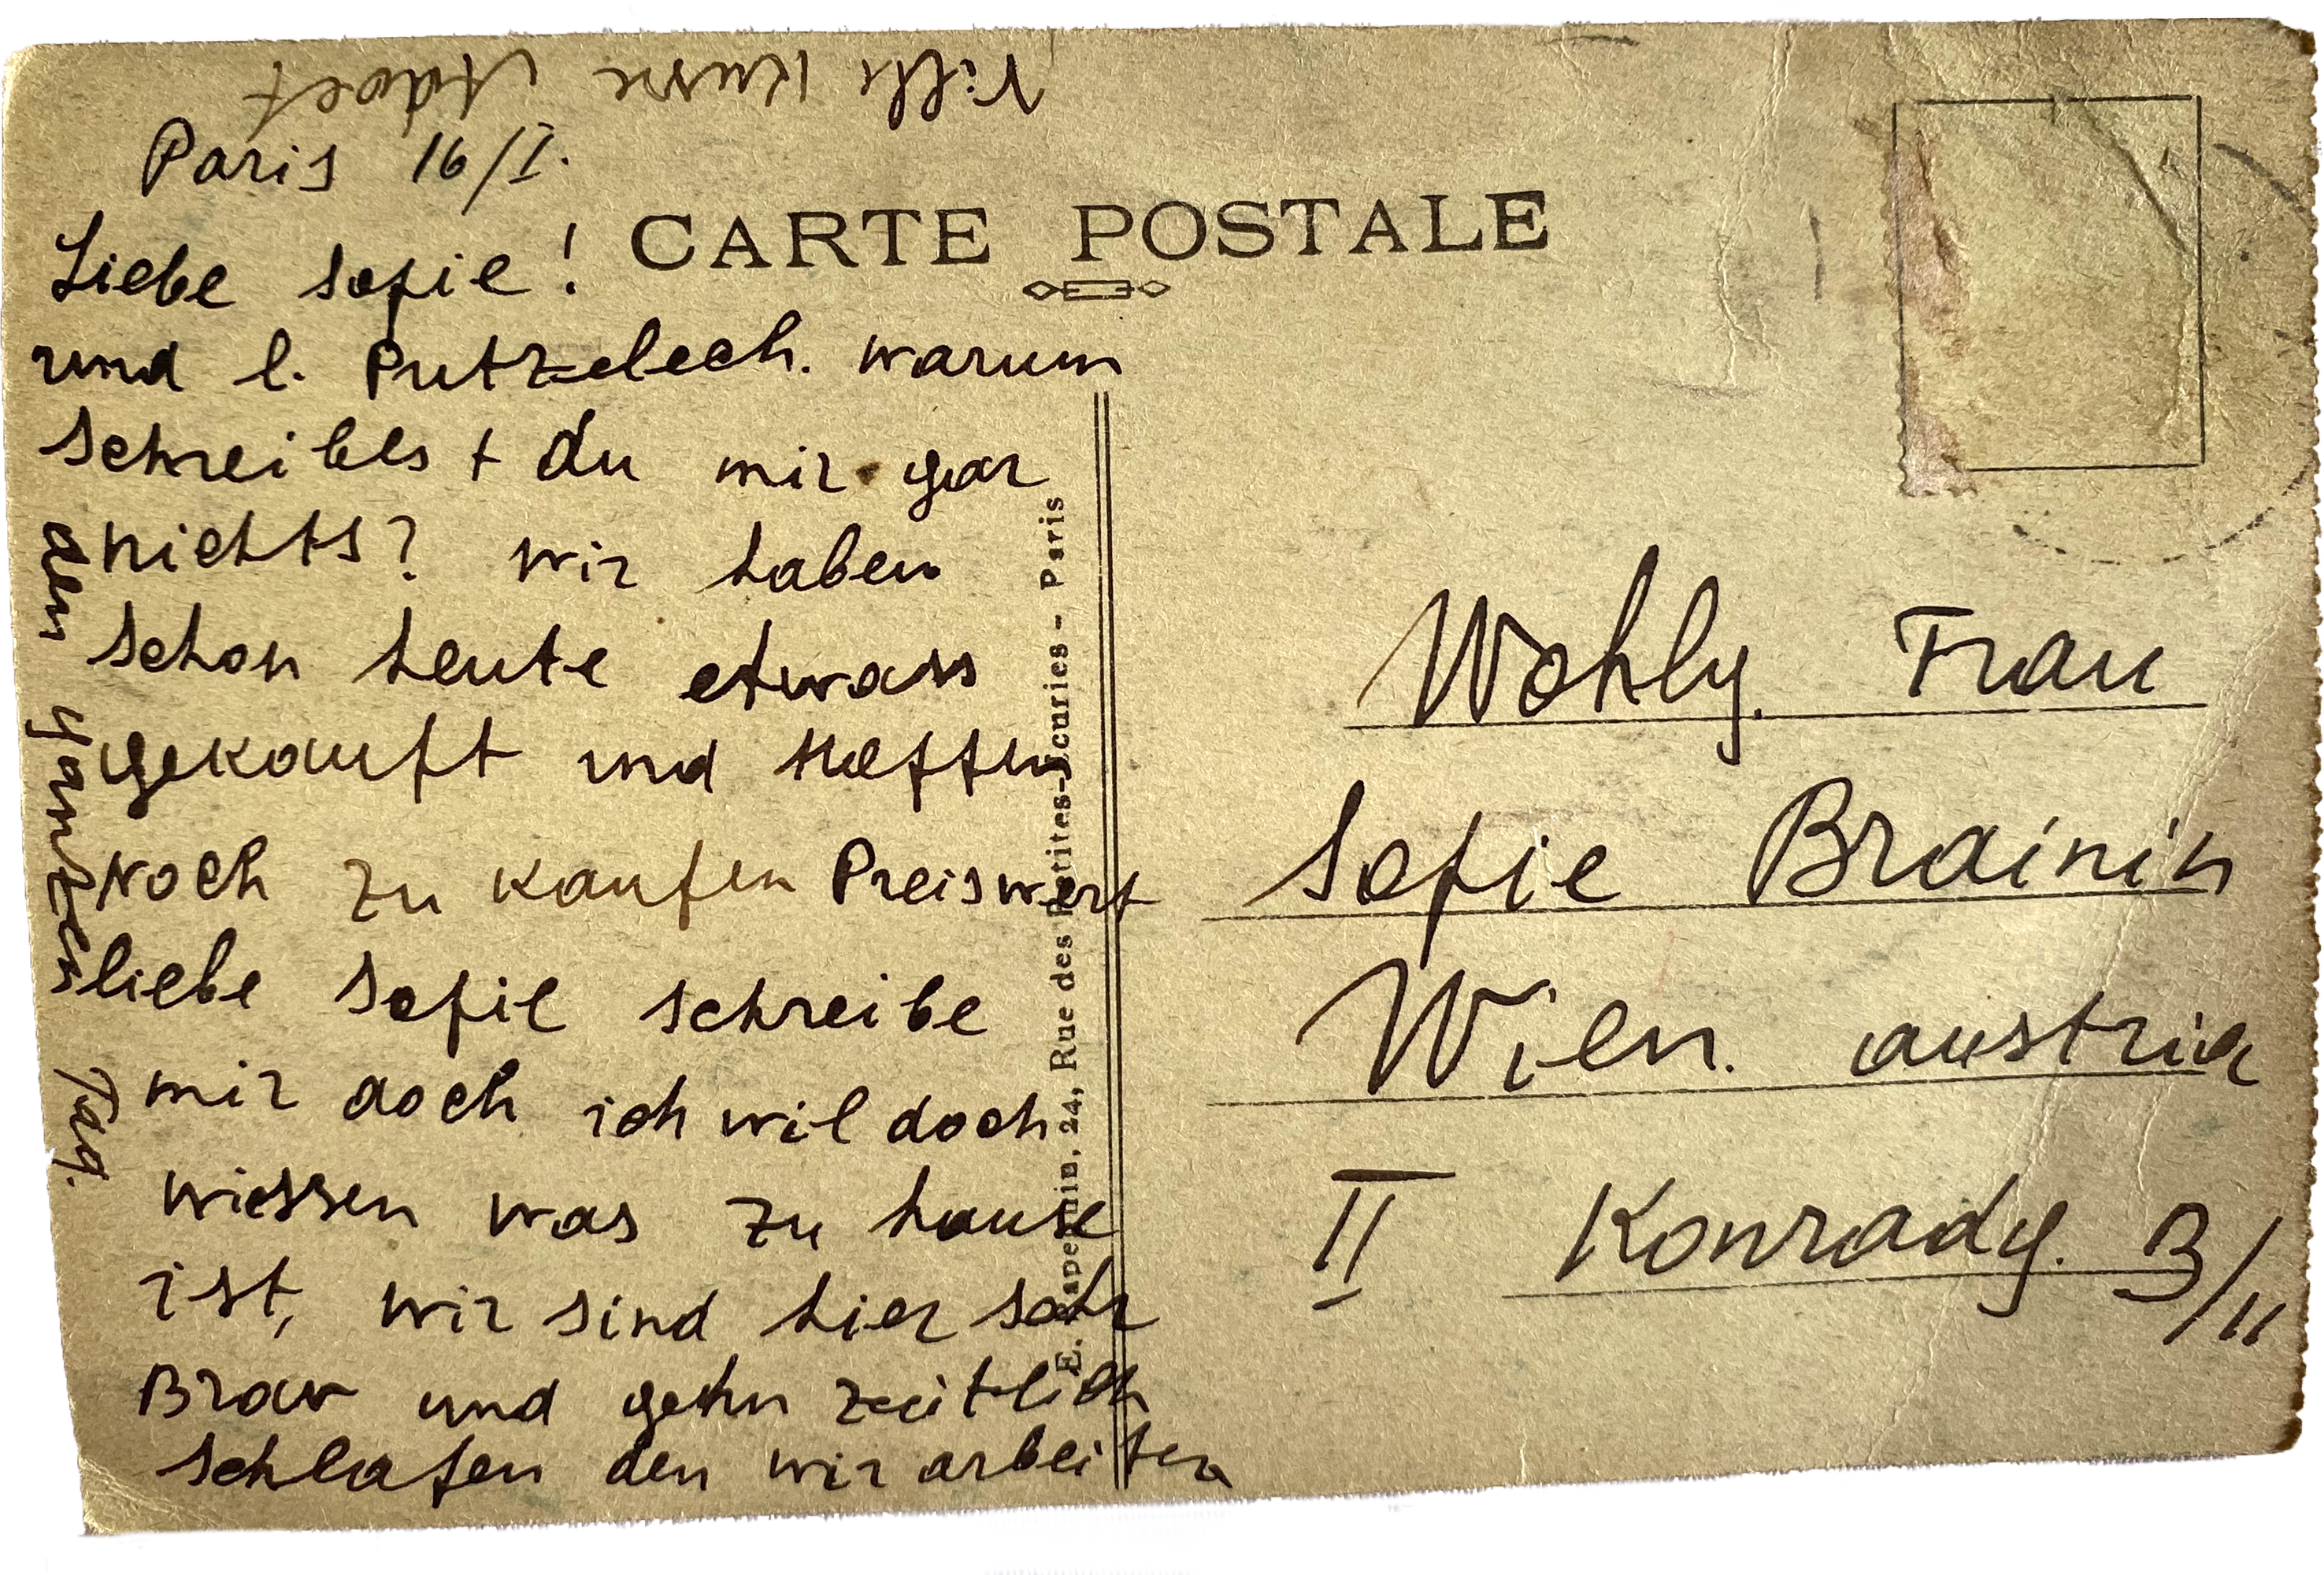 Paris 16/I.
Liebe Sofie!
und l. Putzelech. warum
schreibest du mir gar
nichts? wir haben
schon heute etwass
gekauft und Hoffen
noch zu kaufen Preiswert
liebe Sofie schreibe
mir doch ich wil doch
wiessen was zu hause
ist, wir sind hier sehr
Brav und gehn zeitlich
schlafen den wir arbeiten
den ganzen Tag.
Viele Küsse Adolf
CARTE POSTALE
E. Rue des Petites-Ecuries - Paris
Wohlg. Frau
Sofie Brainin
Wien. austria
II Konradg. 3/11